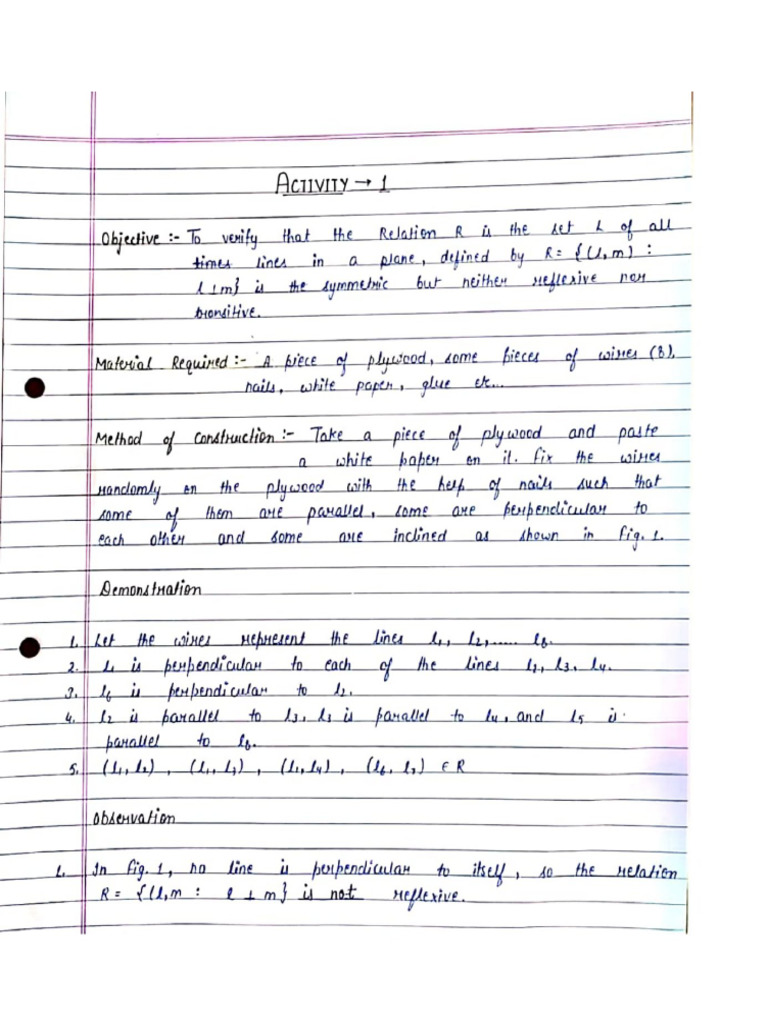 ACTIVITY → 1
Objective :- To verify that the Relation R is the set L of all
times lines in a plane, defined by R = {(l,m) :
l ⊥ m} is the symmetric but neither reflexive nor
transitive.
Material Required :- A piece of plywood, some pieces of wires (8),
nails, white paper, glue etc...
Method of Construction :- Take a piece of plywood and paste
a white paper on it. fix the wires
randomly on the plywood with the help of nails such that
some of them are parallel, some are perpendicular to
each other and some are inclined as shown in fig. 1.
Demonstration
1. Let the wires represent the lines l1, l2,..... l8.
2. l1 is perpendicular to each of the lines l2, l3, l4.
3. l6 is perpendicular to l7.
4. l2 is parallel to l3, l3 is parallel to l4, and l5 is
parallel to l8.
5. (l1, l2) , (l1, l3) , (l1, l4) , (l6, l7) ∈ R
Observation
1. In fig. 1, no line is perpendicular to itself, so the relation
R = {(l,m : l ⊥ m} is not reflexive.